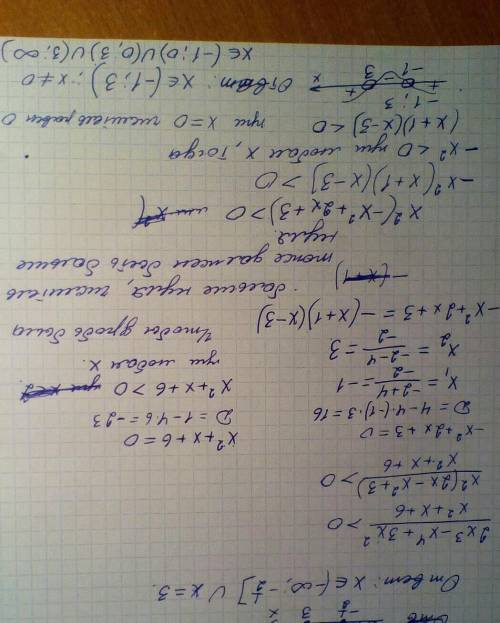 Ответ: x ∈ (-∞; -1/2] ∪ x = 3.
(2x³ - x⁴ + 3x²)/(x² + x + 6) > 0
x²(2x - x² + 3)/(x² + x + 6) > 0
-x² + 2x + 3 = 0
D = 4 - 4·(-1)·3 = 16
x₁ = (-2+4)/(-2) = -1
x₂ = (-2-4)/(-2) = 3
-x² + 2x + 3 = -(x+1)(x-3)
x² + x + 6 = 0
D = 1 - 4·6 = -23
x² + x + 6 > 0
при любом x.
Чтобы дробь была
больше нуля, числитель
тоже должен быть больше
нуля.
x²(-x² + 2x + 3) > 0
-x²(x+1)(x-3) > 0
-x² < 0 при любом x, тогда
(x+1)(x-3) < 0 при x = 0 числитель равен 0
-1; 3
+ - +
-1 3 x
Ответ: x ∈ (-1; 3) ; x ≠ 0
x ∈ (-1; 0) ∪ (0; 3) ∪ (3; ∞)